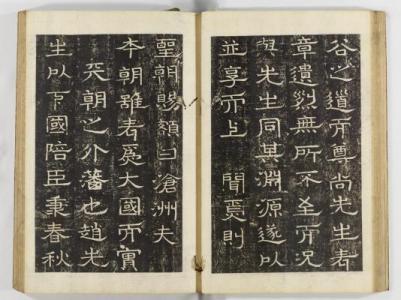 谷之道而尊尚先生表
章遺烈無所不至而況
與先生同其淵源遂以
並享而上 聞焉則
聖朝賜額曰滄洲夫
本朝雖爲大國而實
天朝之介藩也趙先
生以下國陪臣秉春秋